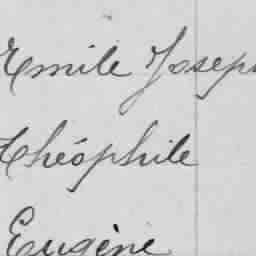 Emile Joseph
Théophile
Eugène